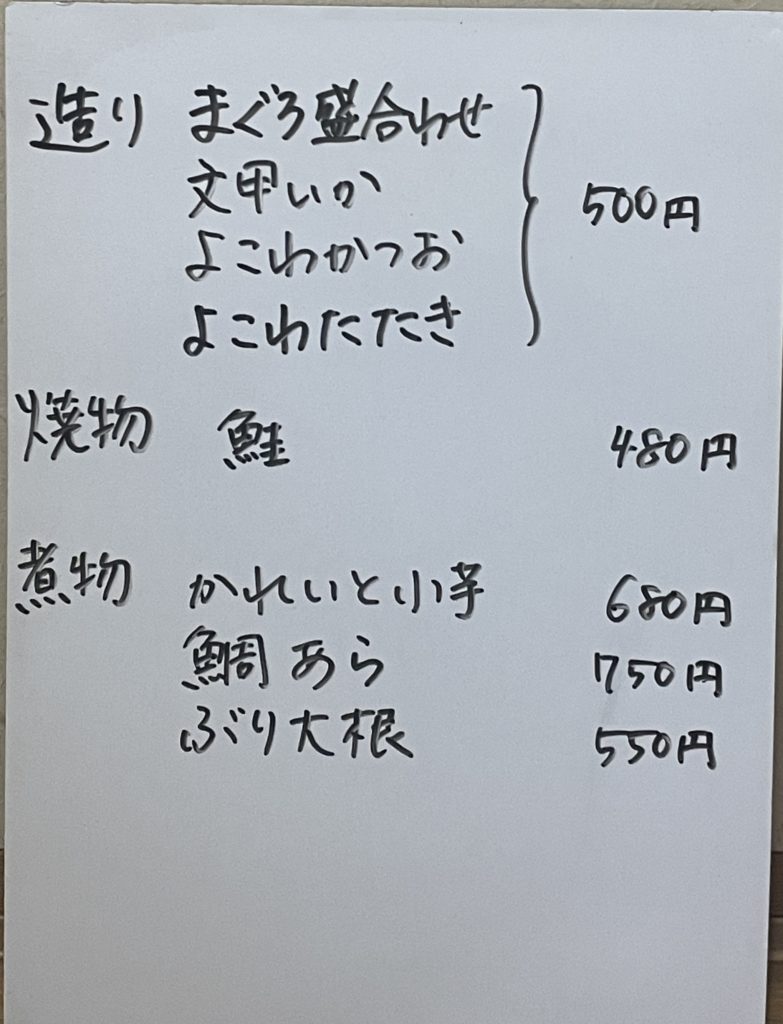 造り まぐろ盛合わせ
文甲いか
よこわかつお
よこわたたき
500円
焼物 鮭 480円
煮物 かれいと小芋 680円
鯛あら 750円
ぶり大根 550円